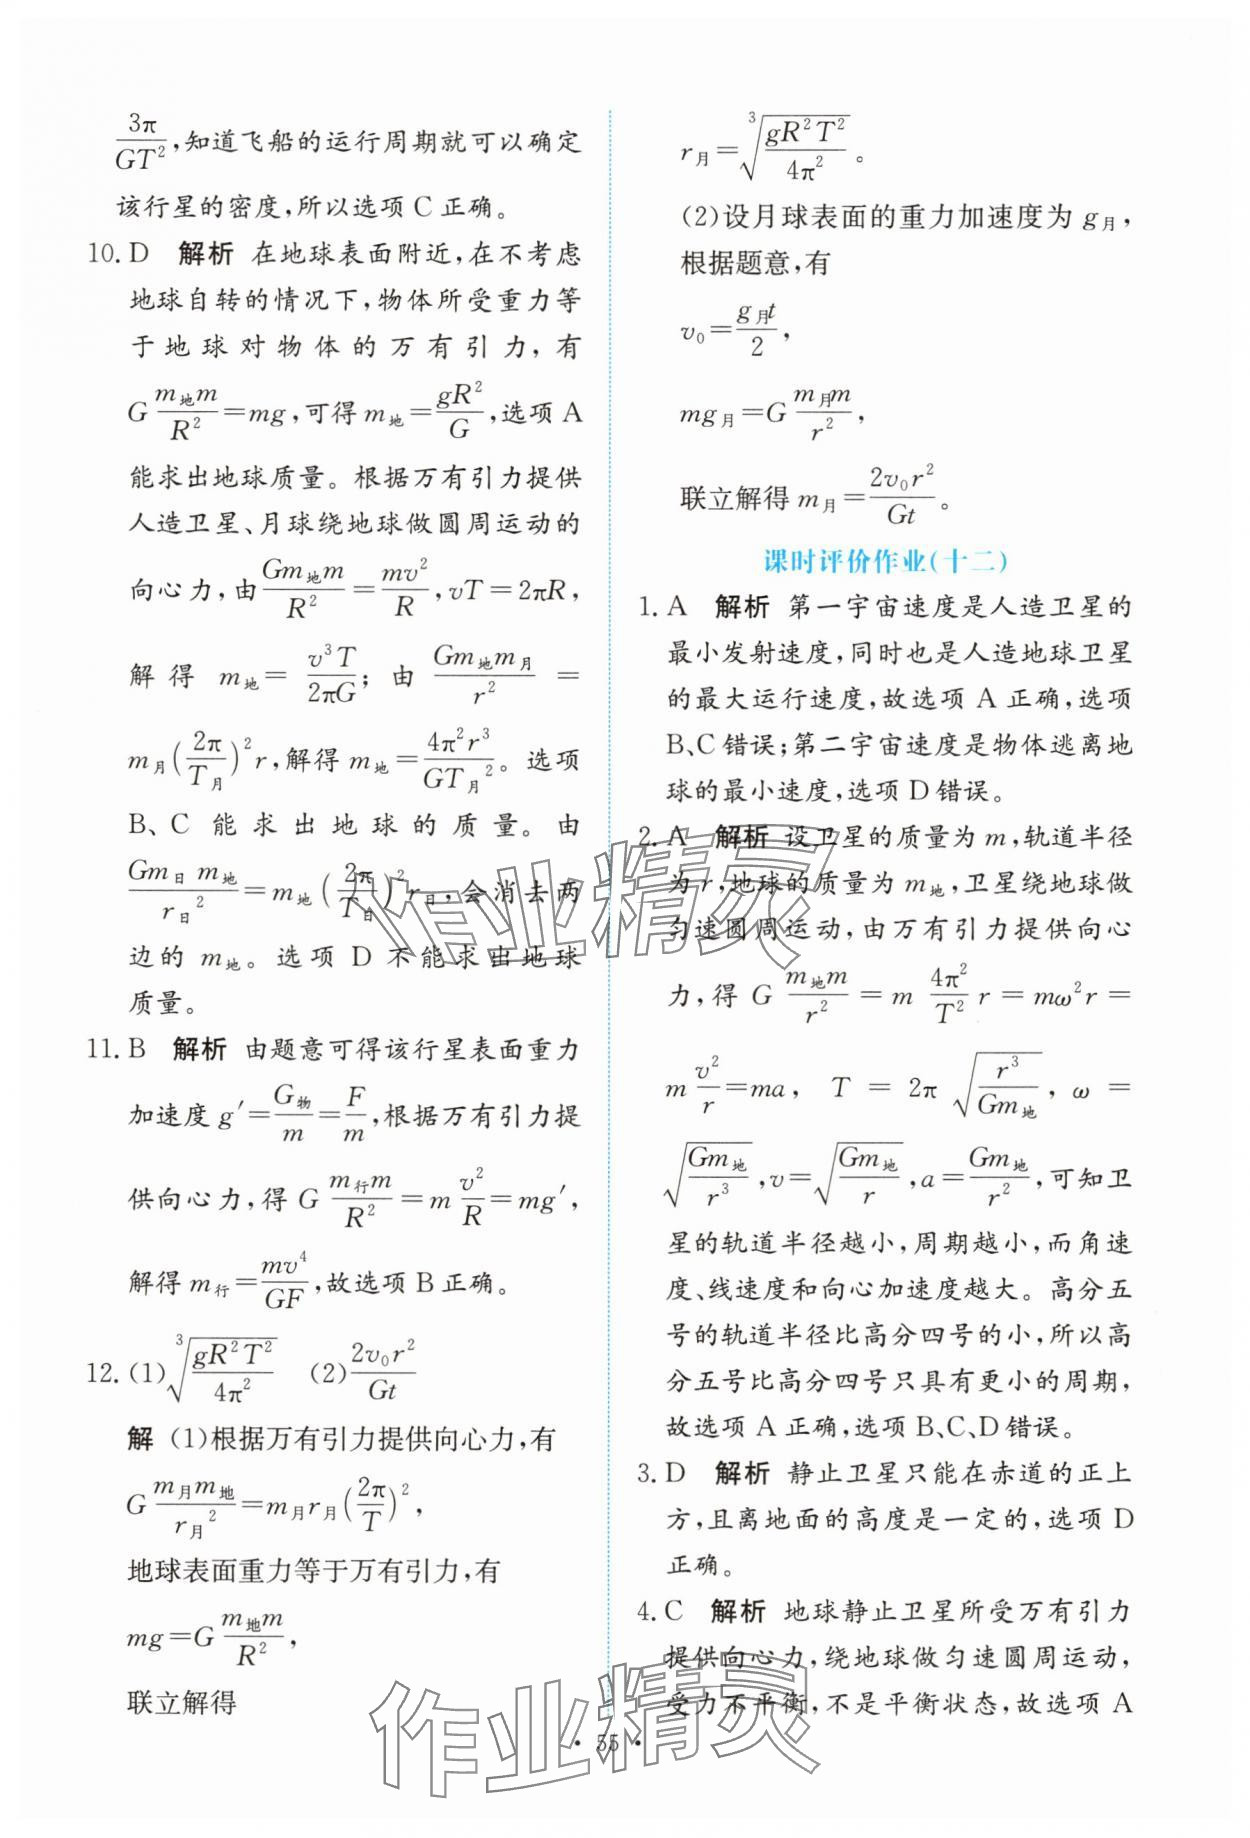 $\frac{3\pi}{GT^2}$,知道飞船的运行周期就可以确定
该行星的密度,所以选项 C 正确。
10. D 解析 在地球表面附近,在不考虑
地球自转的情况下,物体所受重力等
于地球对物体的万有引力,有
$G\frac{m_{地}m}{R^2}=mg$,可得 $m_{地}=\frac{gR^2}{G}$,选项 A
能求出地球质量。根据万有引力提供
人造卫星、月球绕地球做圆周运动的
向心力,由$\frac{Gm_{地}m}{R^2}=\frac{mv^2}{R}$,$vT=2\pi R$,
解得 $m_{地}=\frac{v^3T}{2\pi G}$;由 $\frac{Gm_{地}m_{月}}{r^2}=$
$m_{月}\left(\frac{2\pi}{T_{月}}\right)^2r$,解得 $m_{地}=\frac{4\pi^2r^3}{GT_{月}^2}$。选项
B、C 能求出地球的质量。由
$\frac{Gm_{日}m_{地}}{r_{日}^2}=m_{地}\left(\frac{2\pi}{T_{日}}\right)^2r_{日}$,会消去两
边的 $m_{地}$。选项 D 不能求出地球
质量。
11. B 解析 由题意可得该行星表面重力
加速度 $g'=\frac{G_{物}}{m}=\frac{F}{m}$,根据万有引力提
供向心力,得 $G\frac{m_{行}m}{R^2}=m\frac{v^2}{R}=mg'$,
解得 $m_{行}=\frac{mv^4}{GF}$,故选项 B 正确。
12. (1)$\sqrt[3]{\frac{gR^2T^2}{4\pi^2}}$ (2)$\frac{2v_0r^2}{Gt}$
解 (1)根据万有引力提供向心力,有
$G\frac{m_{月}m_{地}}{r_{月}^2}=m_{月}r_{月}\left(\frac{2\pi}{T}\right)^2$,
地球表面重力等于万有引力,有
$mg=G\frac{m_{地}m}{R^2}$,
联立解得
$r_{月}=\sqrt[3]{\frac{gR^2T^2}{4\pi^2}}$。
(2)设月球表面的重力加速度为 $g_{月}$,
根据题意,有
$v_0=\frac{g_{月}t}{2}$,
$mg_{月}=G\frac{m_{月}m}{r^2}$,
联立解得 $m_{月}=\frac{2v_0r^2}{Gt}$。
课时评价作业(十二)
1. A 解析 第一宇宙速度是人造卫星的
最小发射速度,同时也是人造地球卫星
的最大运行速度,故选项 A 正确,选项
B、C 错误;第二宇宙速度是物体逃离地
球的最小速度,选项 D 错误。
2. A 解析 设卫星的质量为 m,轨道半径
为 r,地球的质量为 $m_{地}$,卫星绕地球做
匀速圆周运动,由万有引力提供向心
力,得 $G\frac{m_{地}m}{r^2}=m\frac{4\pi^2}{T^2}r=m\omega^2r=$
$m\frac{v^2}{r}=ma$,$T=2\pi\sqrt{\frac{r^3}{Gm_{地}}}$,$\omega=$
$\sqrt{\frac{Gm_{地}}{r^3}}$,$v=\sqrt{\frac{Gm_{地}}{r}}$,$a=\frac{Gm_{地}}{r^2}$,可知卫
星的轨道半径越小,周期越小,而角速
度、线速度和向心加速度越大。高分五
号的轨道半径比高分四号的小,所以高
分五号比高分四号只具有更小的周期,
故选项 A 正确,选项 B、C、D 错误。
3. D 解析 静止卫星只能在赤道的正上
方,且离地面的高度是一定的,选项 D
正确。
4. C 解析 地球静止卫星所受万有引力
提供向心力,绕地球做匀速圆周运动,
受力不平衡,不是平衡状态,故选项 A
• 55 •
作业精灵
作业精灵